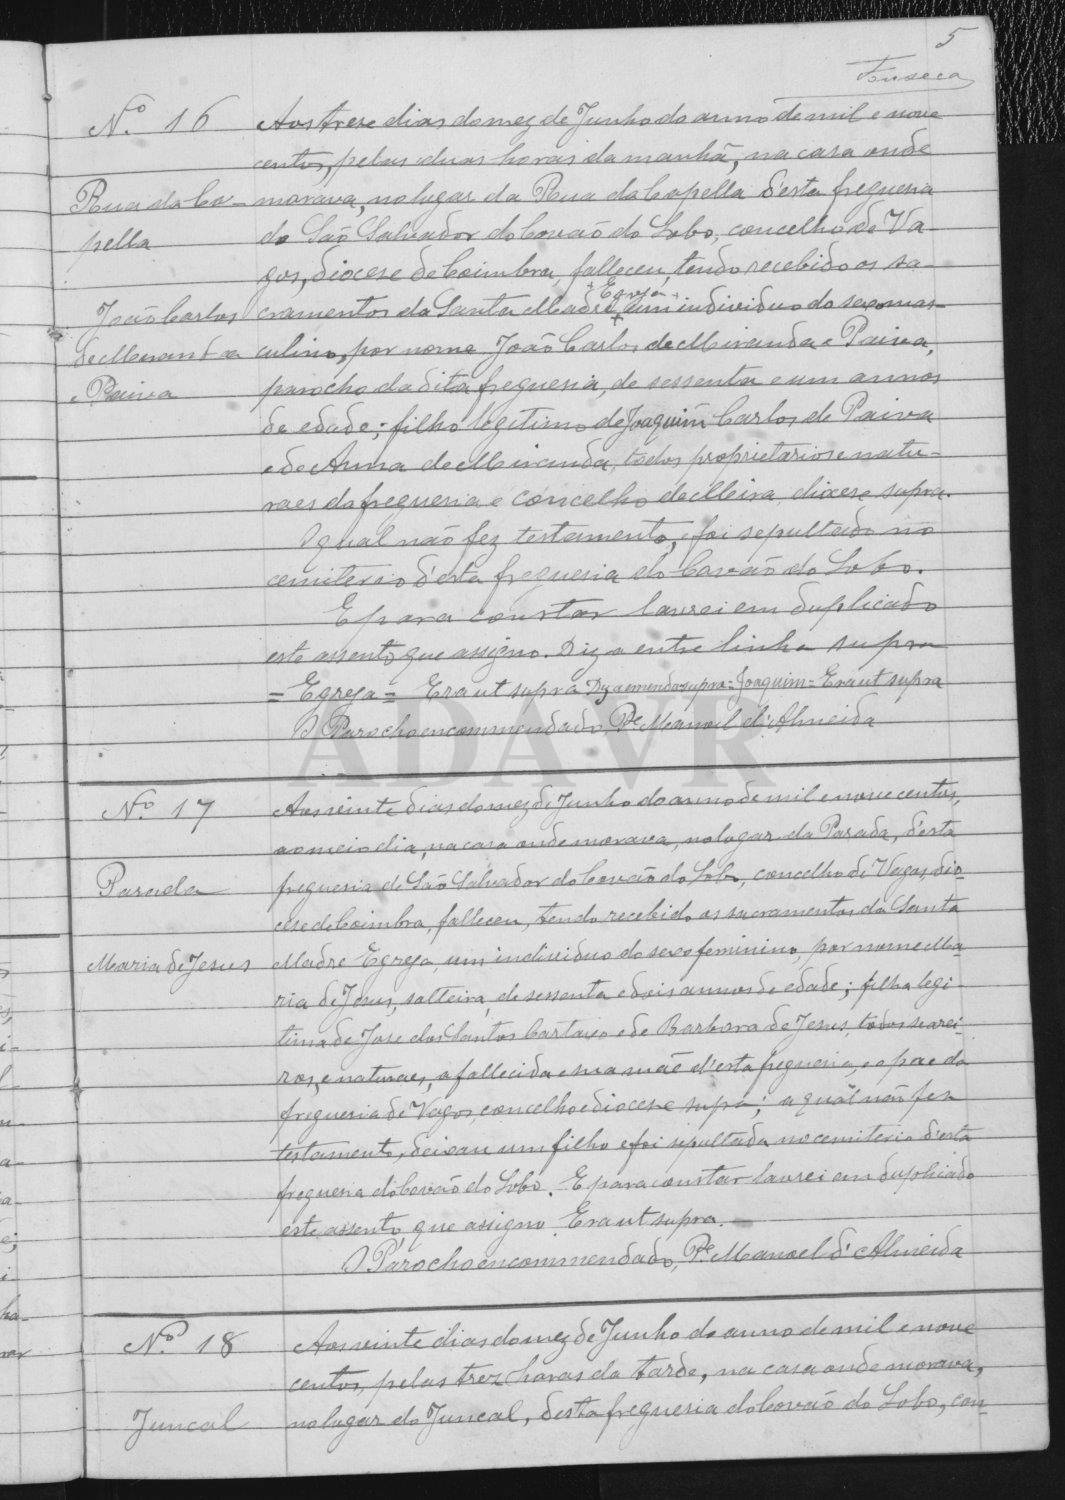 5
Fonseca
N.º 16
Aos treze dias do mez de Junho do anno de mil e nove
centos, pelas duas horas da manhã, na casa onde
Rua da Ca-
morava, no lugar da Rua da Capella d'esta freguesia
pella
do São Salvador do Covão do Lobo, concelho de Va-
gos, diocese de Coimbra, falleceu, tendo recebido os sa-
+ Egreja +
João Carlos
cramentos da Santa Madre + um individuo do sexo mas-
de Miranda
culino, por nome João Carlos de Miranda e Paiva,
e Paiva
parocho da dita freguesia, de sessenta e um annos
de edade; filho legitimo de Joaquim Carlos de Paiva
e de Anna de Miranda, todos proprietarios e natu-
raes da freguesia e concelho de Meira, diocese supra.
O qual não fez testamento, e foi sepultado no
cemiterio d'esta freguesia do Covão do Lobo.
E para constar lavrei em duplicado
este assento que assigno. Diz a entre linha supra
= Egreja = Era ut supra Diz a emenda supra = Joaquim = Era ut supra
O Parocho encommendado, P.e Manoel d'Almeida
ADAVR
N.º 17
Aos vinte dias do mez de Junho do anno de mil e nove centos,
ao meio dia, na casa onde morava, no lugar da Parada, d'esta
Parada
freguesia de São Salvador do Covão do Lobo, concelho de Vagos, dio-
cese de Coimbra, falleceu, tendo recebido os sacramentos da Santa
Maria de Jesus
Madre Egreja, um individuo do sexo feminino, por nome Ma-
ria de Jesus, solteira, de sessenta e dois annos de edade; filha legi-
tima de Jose dos Santos Cartaxo e de Barbara de Jesus, todos searei-
ros, e naturaes, a fallecida e sua mãe d'esta freguesia, e o pae da
freguesia de Vagos, concelho e diocese supra; a qual não fez
testamento, deixou um filho e foi sepultada no cemiterio d'esta
freguesia do Covão do Lobo. E para constar lavrei em duplicado
este assento, que assigno. Era ut supra.
O Parocho encommendado, P.e Manoel d'Almeida
N.º 18
Aos vinte dias do mez de Junho do anno de mil e nove
centos, pelas trez horas da tarde, na casa onde morava,
Juncal
no lugar do Juncal, desta freguesia do Covão do Lobo, con-